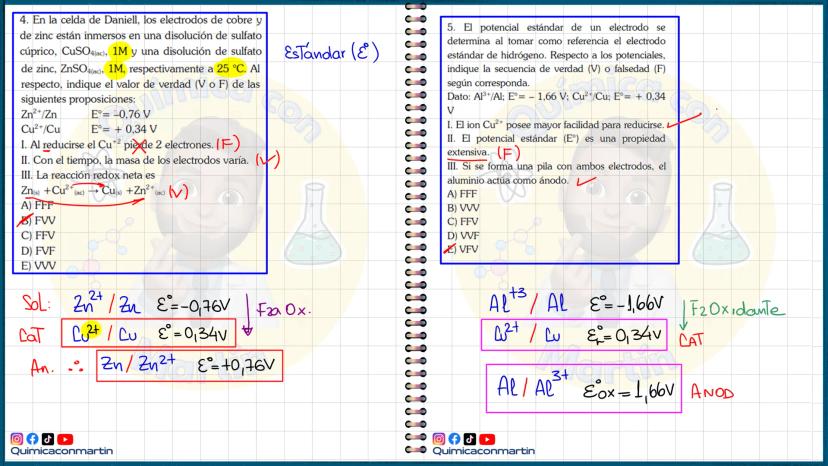 4. En la celda de Daniell, los electrodos de cobre y
de zinc están inmersos en una disolución de sulfato
cúprico, CuSO4(ac), 1M y una disolución de sulfato
de zinc, ZnSO4(ac), 1M, respectivamente a 25 °C. Al
respecto, indique el valor de verdad (V o F) de las
siguientes proposiciones:
Zn²⁺/Zn E°= –0,76 V
Cu²⁺/Cu E°= + 0,34 V
I. Al reducirse el Cu⁺² pierde 2 electrones. (F)
II. Con el tiempo, la masa de los electrodos varía. (V)
III. La reacción redox neta es
Zn(s) +Cu²⁺(ac) → Cu(s) +Zn²⁺(ac) (V)
A) FFF
B) FVV
C) FFV
D) FVF
E) VVV
Estándar (Ɛ°)
Sol: Zn²⁺ / Zn Ɛ°= -0,76V
CaT Cu²⁺ / Cu Ɛ°= 0,34V
F2a Ox.
An. ∴ Zn / Zn²⁺ Ɛ°= +0,76V
Quimicaconmartin
5. El potencial estándar de un electrodo se
determina al tomar como referencia el electrodo
estándar de hidrógeno. Respecto a los potenciales,
indique la secuencia de verdad (V) o falsedad (F)
según corresponda.
Dato: Al³⁺/Al; E°= – 1,66 V; Cu²⁺/Cu; E°= + 0,34
V
I. El ion Cu²⁺ posee mayor facilidad para reducirse.
II. El potencial estándar (E°) es una propiedad
extensiva. (F)
III. Si se forma una pila con ambos electrodos, el
aluminio actúa como ánodo.
A) FFF
B) VVV
C) FFV
D) VVF
E) VFV
Al⁺³ / Al Ɛ°= -1,66V
F2 Oxidante
Cu²⁺ / Cu Ɛ°r= 0,34V CAT
Al / Al³⁺ Ɛ°ox = 1,66V ANOD
Quimicaconmartin
Química con
Martin
Química con
Martin